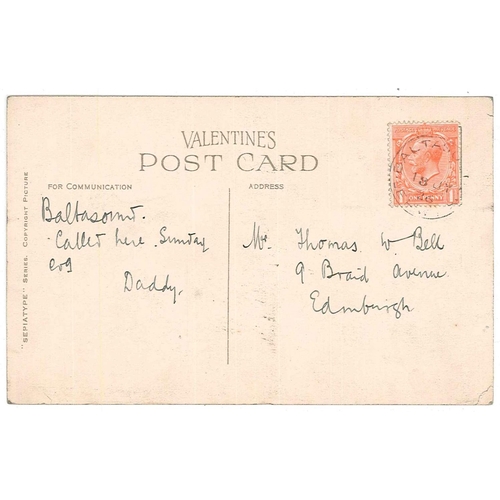 VALENTINE'S
POST CARD
FOR COMMUNICATION
ADDRESS
Baltasound.
Called here Sunday
evg
Daddy.
Mr. Thomas W. Bell
9 Braid Avenue
Edinburgh
"SEPIATYPE" SERIES. COPYRIGHT PICTURE
BALTA
18 JU
1 ONE PENNY 1